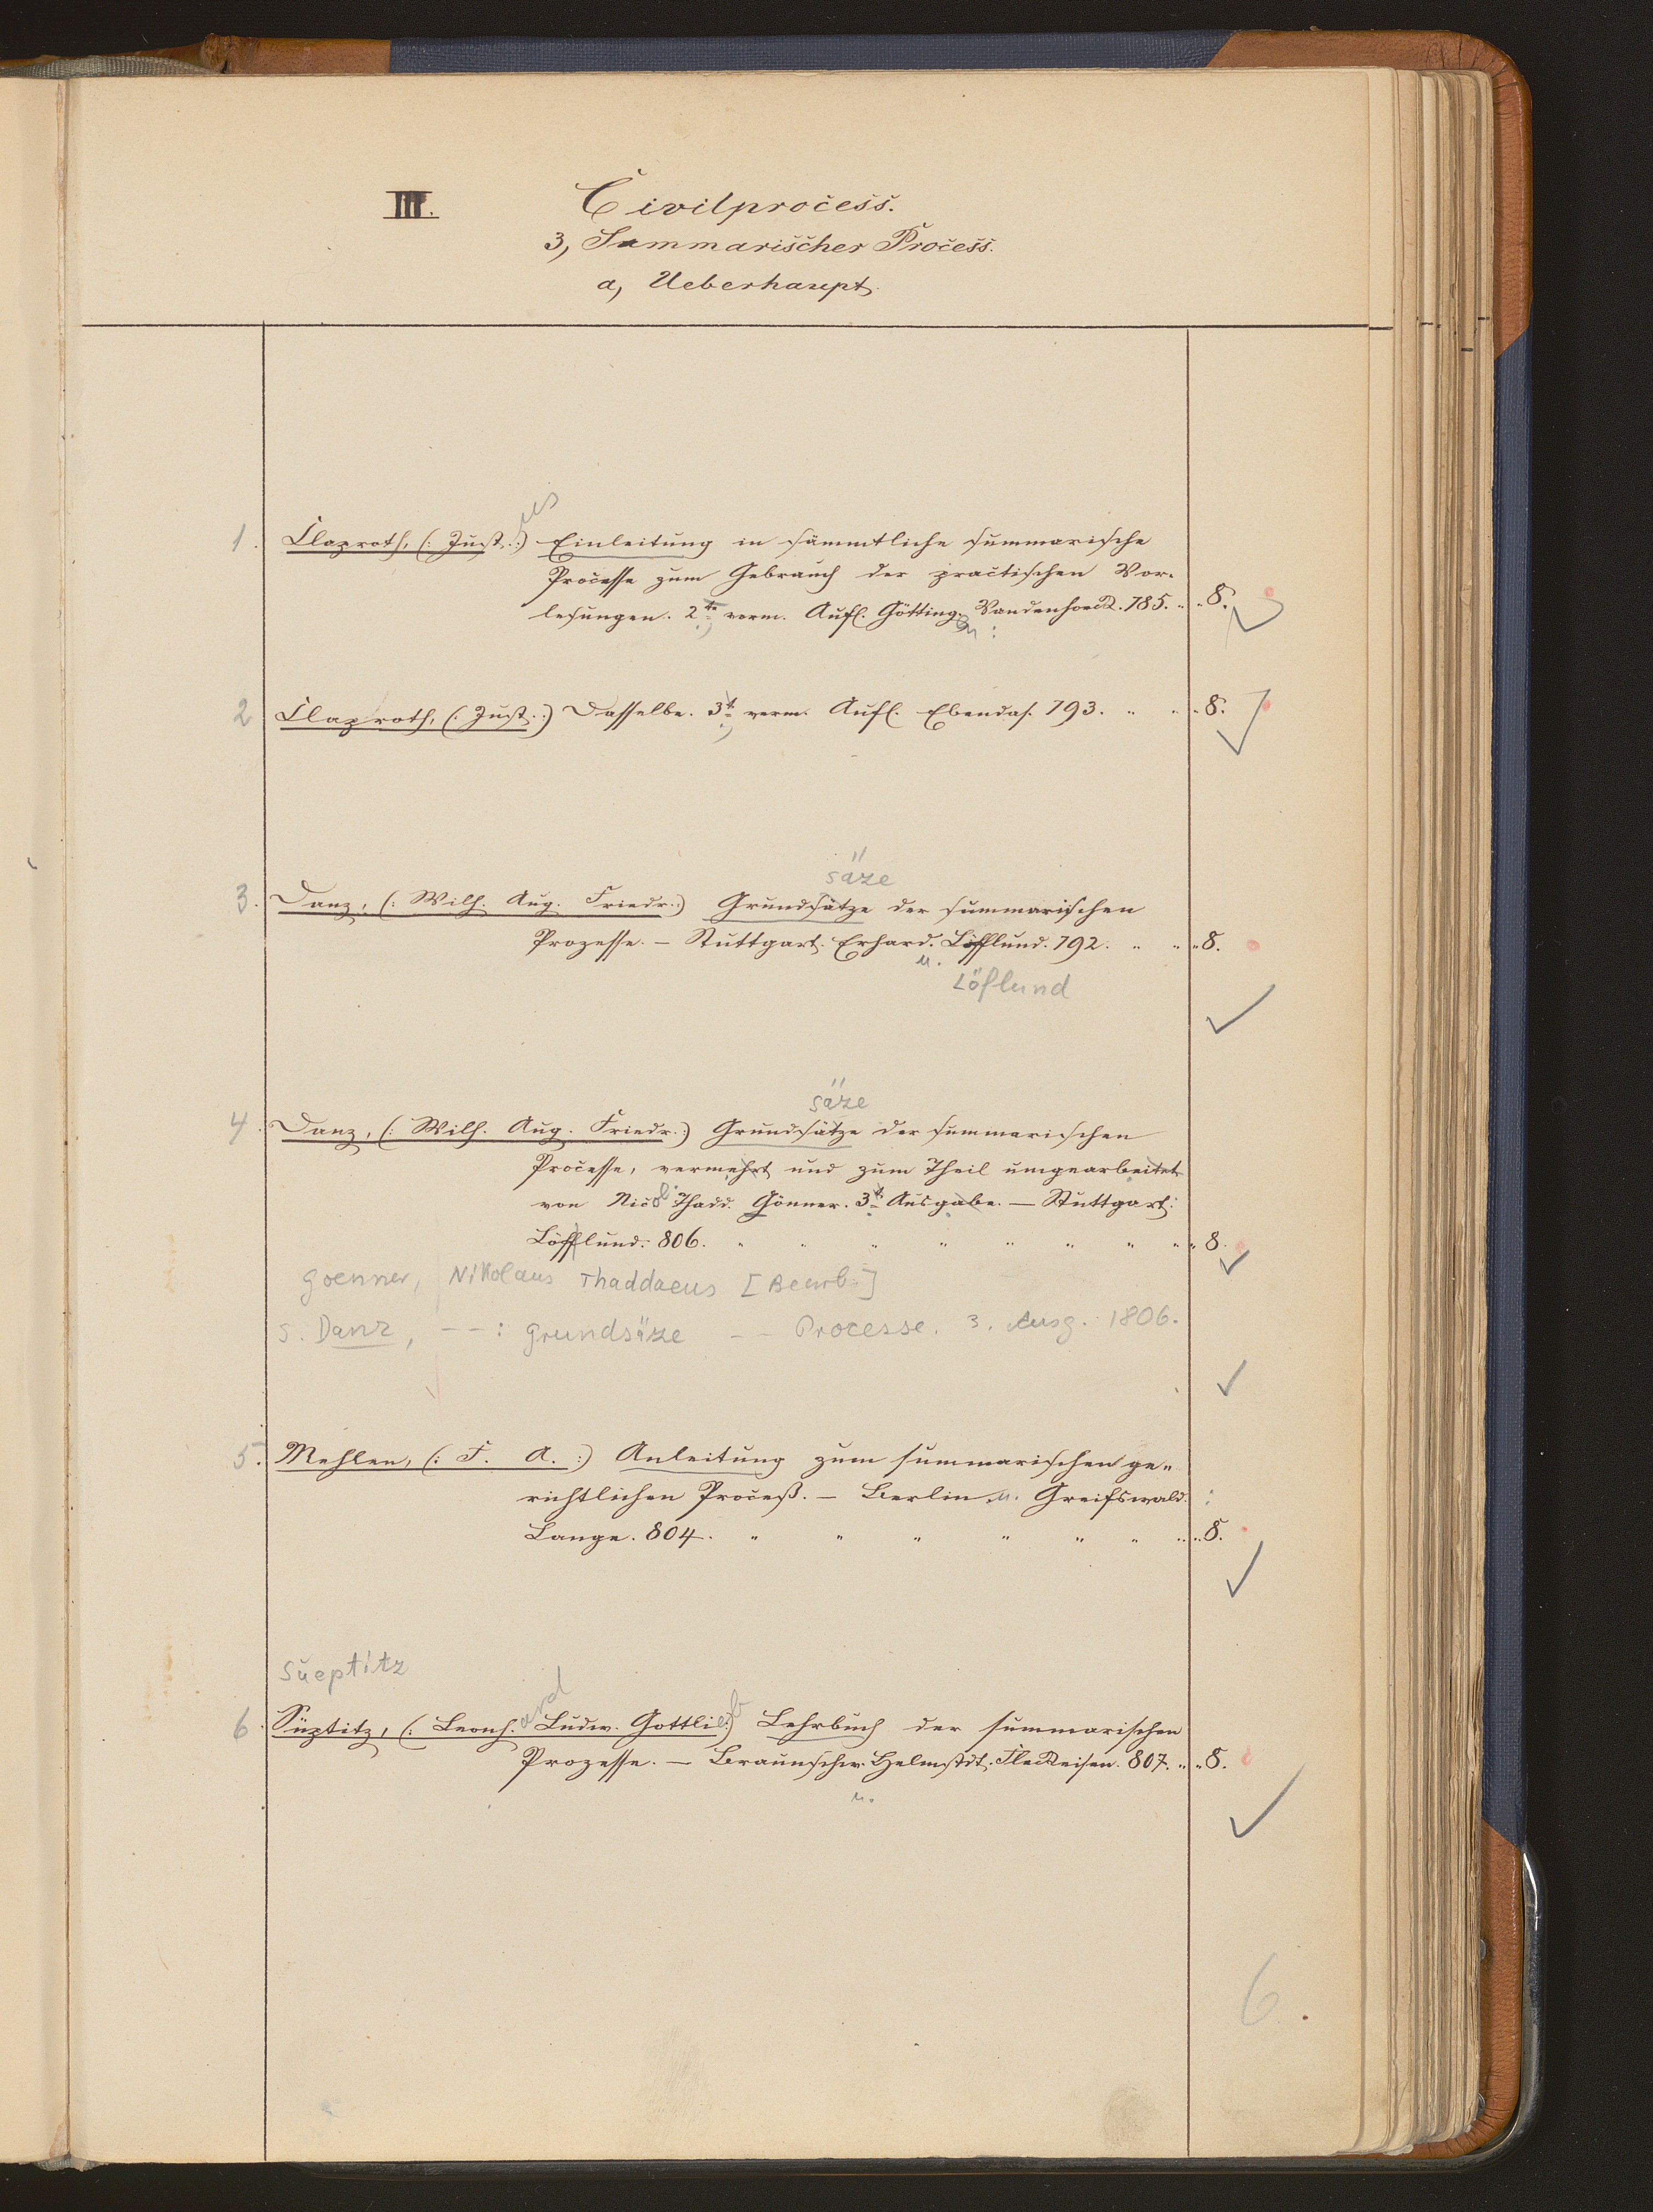 III. Civilprocess.
3, Summarischer Process.
a, Ueberhaupt.
us
1. Claproth, (: Just. :) Einleitung in sämmtliche summarische
Processe zum Gebrauch der practischen Vor-
lesungen. 2te verm. Aufl. Götting. Vandenhoeck. 785. " " 8.
en :
2 Claproth, (: Just. :) Dasselbe. 3t verm. Aufl. Ebendas. 793. " " " 8.
säze
3. Danz, (: Wilh. Aug. Friedr. :) Grundsätze der summarischen
Prozesse. — Stuttgart. Erhard. Löfflund. 792. " " " 8.
u.
Löflund
säze
4. Danz, (: Wilh. Aug. Friedr. :) Grundsätze der summarischen
Processe, vermehrt und zum Theil umgearbeitet
von Nicol. Thadd. Gönner. 3t Ausgabe. — Stuttgart:
Löfflund. 806. " " " " " " " " " 8.
Goenner, Nikolaus Thaddaeus [Bearb.]
s. Danz, --: Grundsäze -- Processe. 3. Ausg. 1806.
5. Mehlen, (: F. A. :) Anleitung zum summarischen ge-
richtlichen Proceß. — Berlin u. Greifswald. :
Lange. 804. " " " " " " " " 8.
Süeptitz
ard
6. Süptitz, (: Leonh. Ludw. Gottlieb :) Lehrbuch der summarischen
Prozesse. — Braunschw. Helmstdt. Fleckeisen. 807. " " 8.
u.
6.